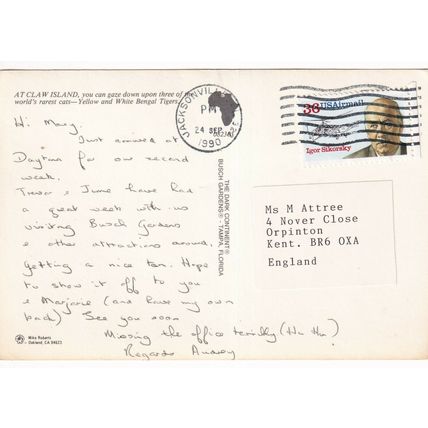 AT CLAW ISLAND, you can gaze down upon three of the
world's rarest cats—Yellow and White Bengal Tigers.
Hi Mary.
Just arrived at
Daytona for our second
week.
Trevor & June have had
a great week with us
visiting Busch Gardens
& other attractions around.
Getting a nice tan. Hope
to show it off to you
& Marjorie (and have my own
back) See you soon
Missing the office terribly (Ha Ha)
Regards Audrey
Mike Roberts
Oakland, CA 94623
THE DARK CONTINENT®
BUSCH GARDENS® · TAMPA, FLORIDA
JACKSONVILLE
PM
24 SEP
1990
36 USAirmail
Igor Sikorsky
Ms M Attree
4 Nover Close
Orpinton
Kent. BR6 OXA
England